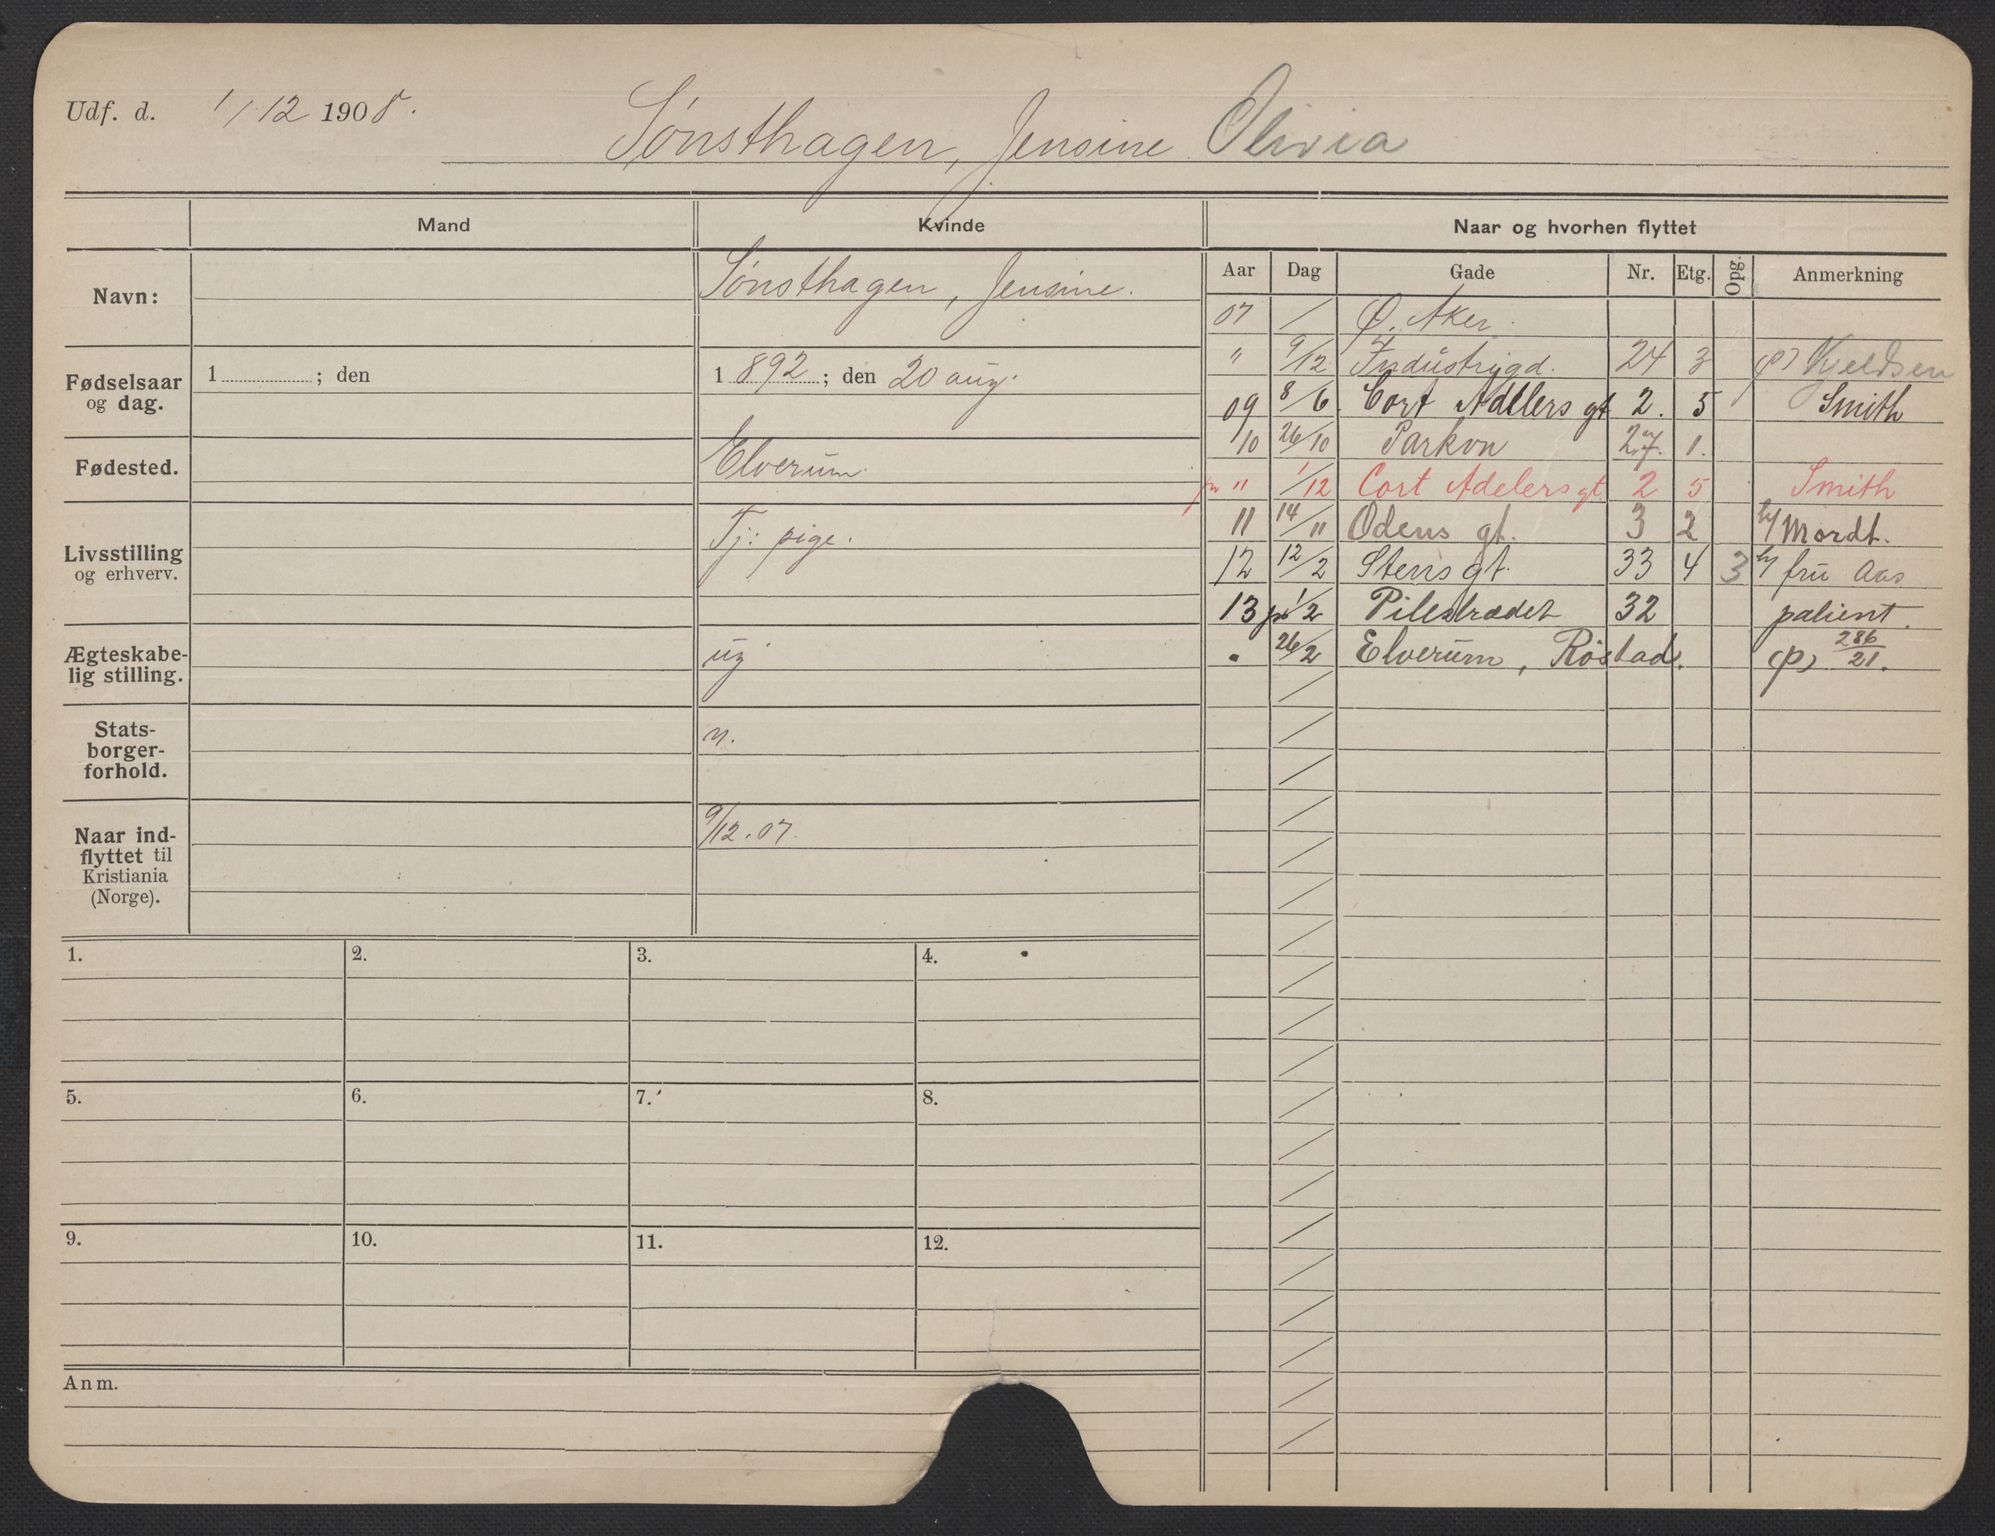 Udf. d. 1/12 1908.
Sønsthagen, Jensine Olivia
Mand Kvinde Naar og hvorhen flyttet
Aar Dag Gade Nr. Etg. Opg. Anmerkning
Navn: Sønsthagen, Jensine.
Fødselsaar og dag. 1 ; den 1 892 ; den 20 aug.
Fødested. Elverum.
Livsstilling og erhverv. Tj: pige.
Ægteskabe-
lig stilling. ug
Stats-
borger-
forhold. n.
Naar ind-
flyttet til
Kristiania
(Norge). 9/12.07.
07 / Ø. Aker.
" 9/12 Industrigd. 24 3 (p) Kjeldsen
09 8/6 Cort Adelers gt 2. 5 Smith
10 26/10 Parkvn 27. 1.
" 1/12 Cort Adelers gt 2 5 Smith
11 14/11 Odens gt. 3 2 h/ Mordt.
12 12/2 Stens gt. 33 4 3 h/ fru Aas
13 1/2 Pilestrædet 32 patient.
" 26/2 Elverum, Röstad. (p) 286/21.
1. 2. 3. 4.
5. 6. 7. 8.
9. 10. 11. 12.
Anm.